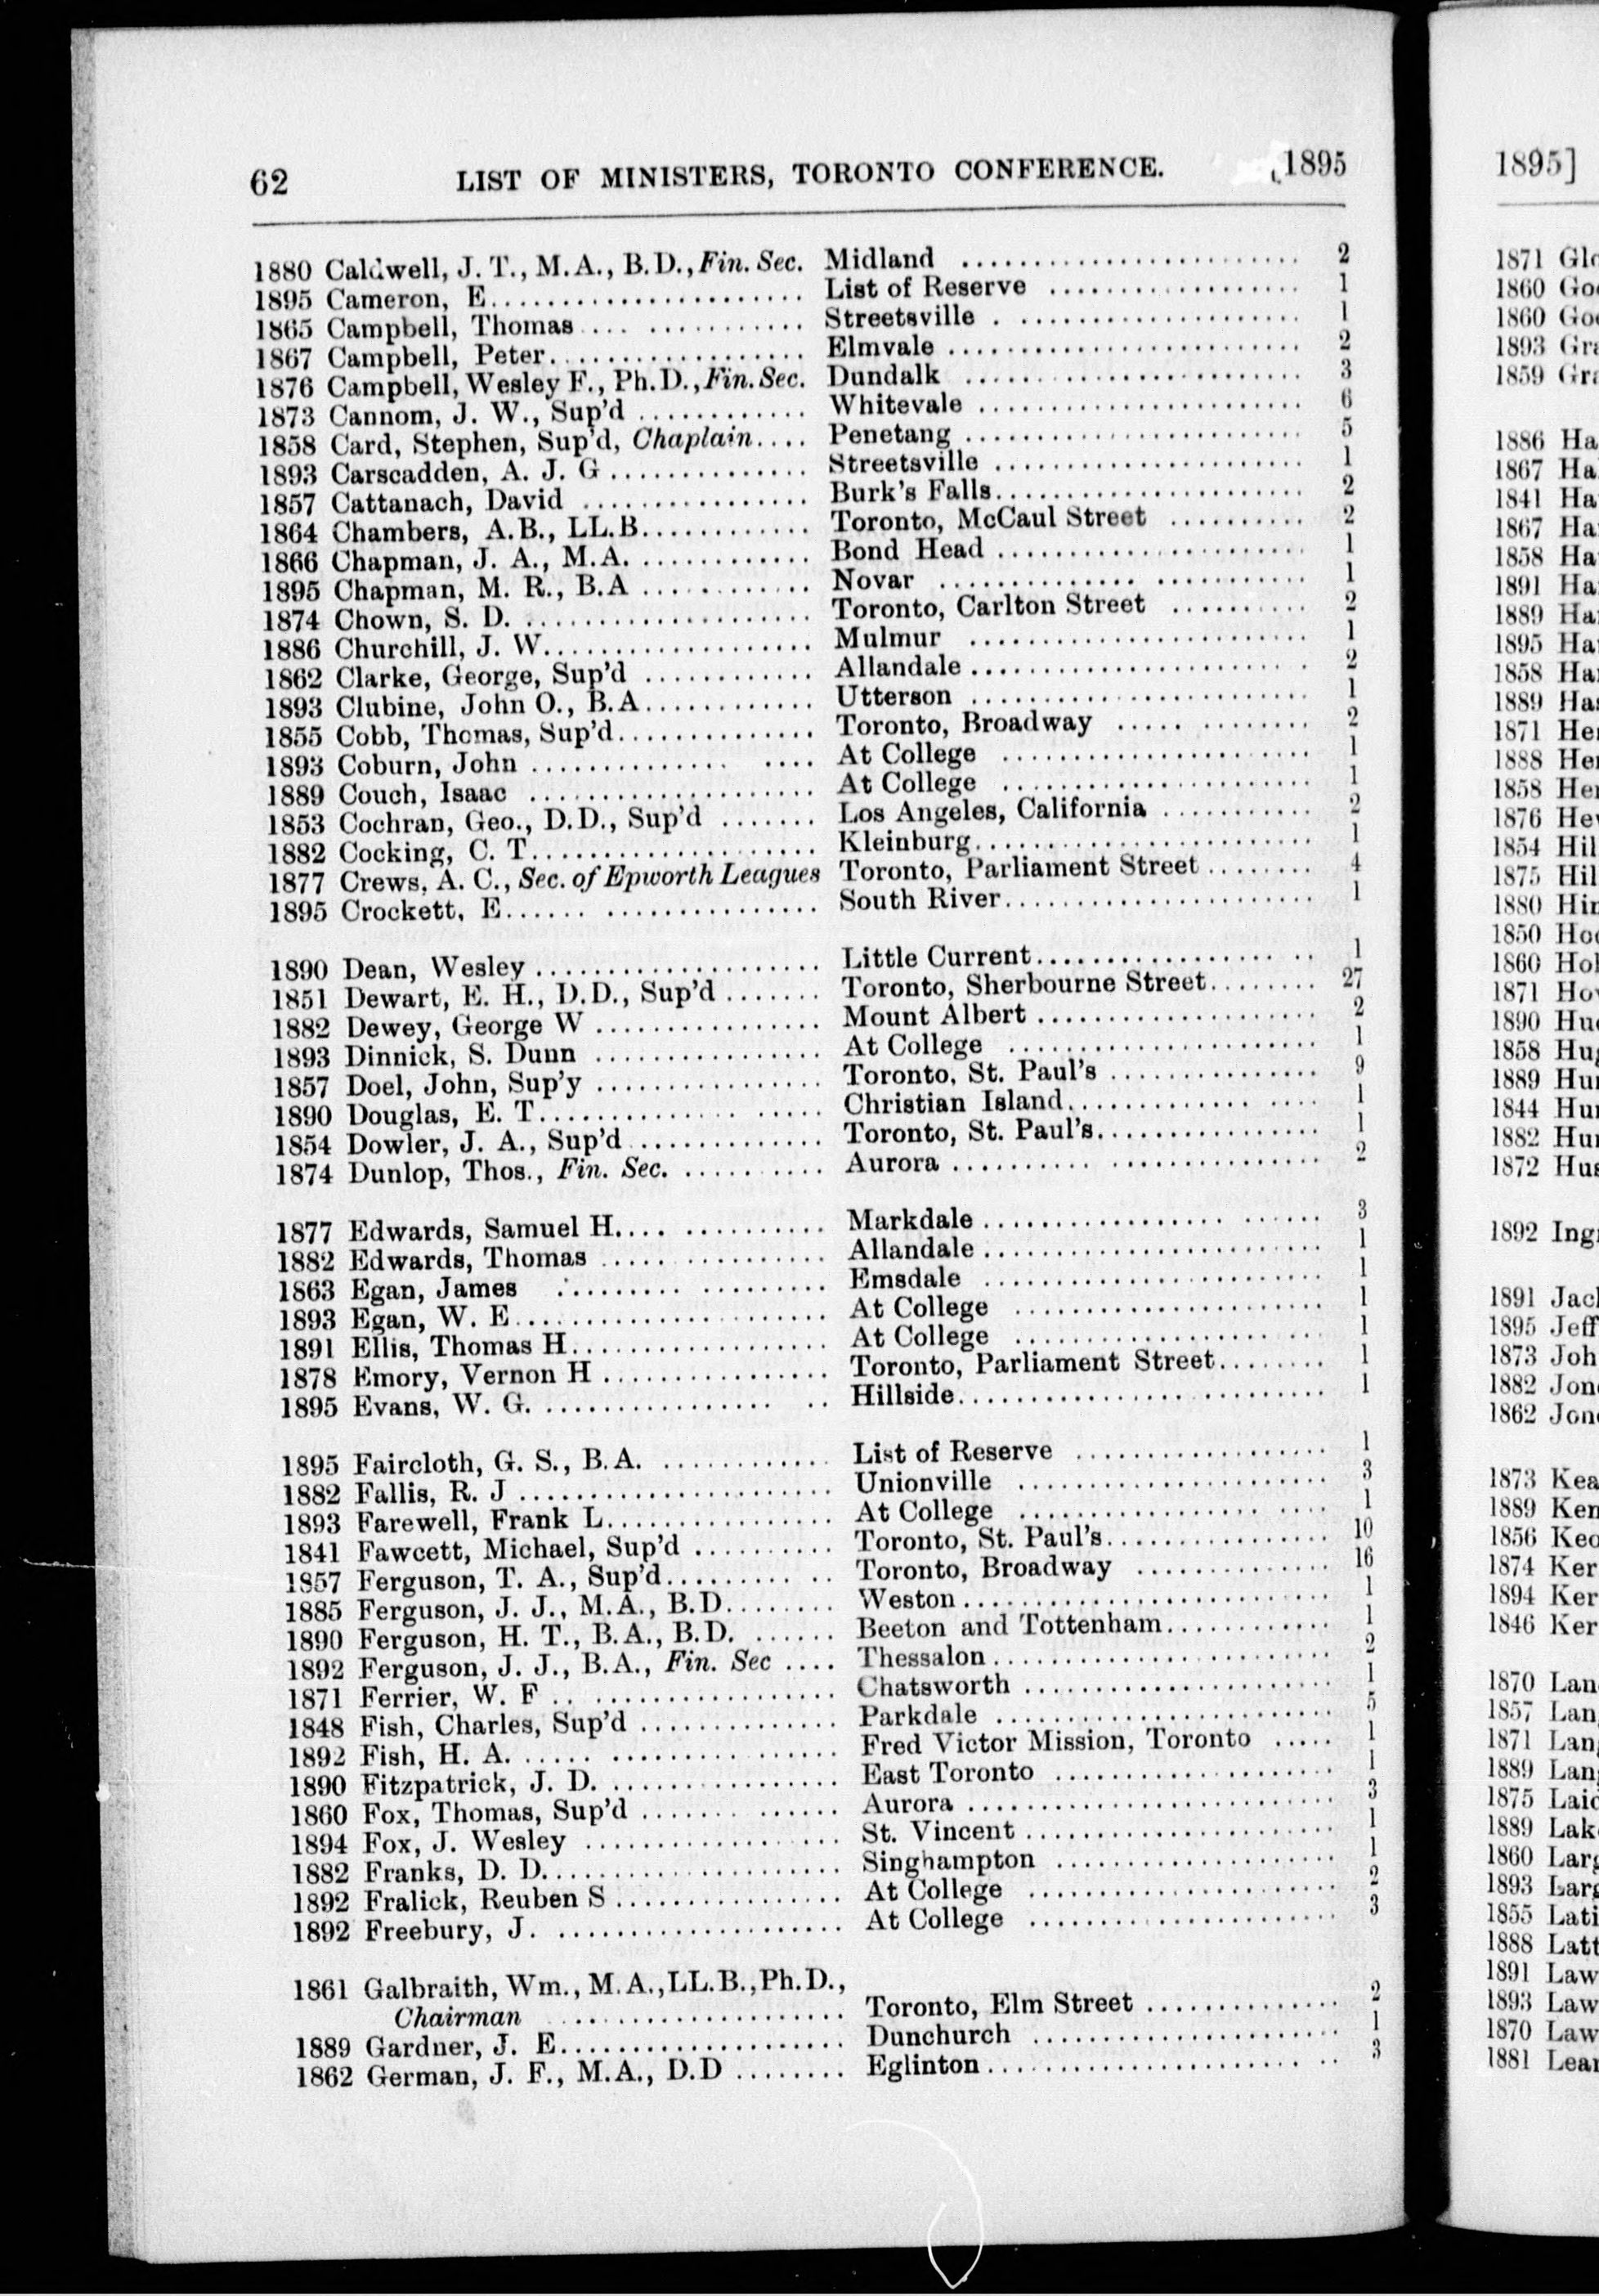 62 LIST OF MINISTERS, TORONTO CONFERENCE. [1895
1880 Caldwell, J. T., M.A., B.D., Fin. Sec. Midland ........................ 2
1895 Cameron, E...................... List of Reserve .................. 1
1865 Campbell, Thomas .... ............ Streetsville . .................... 1
1867 Campbell, Peter.................. Elmvale ........................ 2
1876 Campbell, Wesley F., Ph.D., Fin. Sec. Dundalk ........................ 3
1873 Cannom, J. W., Sup'd ............ Whitevale ....................... 6
1858 Card, Stephen, Sup'd, Chaplain.... Penetang ........................ 5
1893 Carscadden, A. J. G .............. Streetsville ...................... 1
1857 Cattanach, David ................ Burk's Falls...................... 2
1864 Chambers, A.B., LL.B............ Toronto, McCaul Street .......... 2
1866 Chapman, J. A., M.A. ............ Bond Head ...................... 1
1895 Chapman, M. R., B.A ............ Novar .............. ........... 1
1874 Chown, S. D. .................... Toronto, Carlton Street .......... 2
1886 Churchill, J. W................... Mulmur ........................ 1
1862 Clarke, George, Sup'd ............ Allandale ........................ 2
1893 Clubine, John O., B.A............ Utterson ........................ 1
1855 Cobb, Thomas, Sup'd.............. Toronto, Broadway ..... ........ 2
1893 Coburn, John .............. .... At College ...................... 1
1889 Couch, Isaac ...................... At College ...................... 1
1853 Cochran, Geo., D.D., Sup'd ....... Los Angeles, California ........... 2
1882 Cocking, C. T.................... Kleinburg........................ 1
1877 Crews, A. C., Sec. of Epworth Leagues Toronto, Parliament Street ........ 4
1895 Crockett, E...... ............... South River...................... 1
1890 Dean, Wesley .................... Little Current.................. .. 1
1851 Dewart, E. H., D.D., Sup'd ....... Toronto, Sherbourne Street........ 27
1882 Dewey, George W ................ Mount Albert .................... 2
1893 Dinnick, S. Dunn ................ At College ...................... 1
1857 Doel, John, Sup'y ................ Toronto, St. Paul's ............... 9
1890 Douglas, E. T.............. ..... Christian Island............. .... 1
1854 Dowler, J. A., Sup'd .............. Toronto, St. Paul's................ 1
1874 Dunlop, Thos., Fin. Sec. .......... Aurora .......... ............... 2
1877 Edwards, Samuel H.... .......... Markdale ................. ...... 3
1882 Edwards, Thomas ................ Allandale ........................ 1
1863 Egan, James ......... ......... Emsdale ........................ 1
1893 Egan, W. E...................... At College ...................... 1
1891 Ellis, Thomas H.................. At College ...................... 1
1878 Emory, Vernon H ................ Toronto, Parliament Street........ 1
1895 Evans, W. G. ................ .. Hillside.......................... 1
1895 Faircloth, G. S., B.A. ............ List of Reserve .................. 1
1882 Fallis, R. J ...................... Unionville ...................... 3
1893 Farewell, Frank L................ At College ................. .... 1
1841 Fawcett, Michael, Sup'd .......... Toronto, St. Paul's................ 10
1857 Ferguson, T. A., Sup'd.......... .. Toronto, Broadway .............. 16
1885 Ferguson, J. J., M.A., B.D........ Weston .......................... 1
1890 Ferguson, H. T., B.A., B.D. ...... Beeton and Tottenham............ 1
1892 Ferguson, J. J., B.A., Fin. Sec .... Thessalon........................ 2
1871 Ferrier, W. F .. ................. Chatsworth ...................... 1
1848 Fish, Charles, Sup'd .............. Parkdale ........................ 5
1892 Fish, H. A. ...... ................ Fred Victor Mission, Toronto ..... 1
1890 Fitzpatrick, J. D. ................ East Toronto .................... 1
1860 Fox, Thomas, Sup'd ........ ...... Aurora .......................... 3
1894 Fox, J. Wesley .................. St. Vincent ...................... 1
1882 Franks, D. D..................... Singhampton .................... 1
1892 Fralick, Reuben S ................ At College ...................... 2
1892 Freebury, J. .................... At College ...................... 3
1861 Galbraith, Wm., M.A., LL.B., Ph.D.,
Chairman .................... Toronto, Elm Street .............. 2
1889 Gardner, J. E.................... Dunchurch ...................... 1
1862 German, J. F., M.A., D.D ........ Eglinton ......................... 3
1895]
1871
1860
1860
1893
1859
1886
1867
1841
1867
1858
1891
1889
1895
1858
1889
1871
1888
1858
1876
1854
1875
1880
1850
1860
1871
1890
1858
1889
1844
1882
1872
1892
1891
1895
1873
1882
1862
1873
1889
1856
1874
1894
1846
1870
1857
1871
1889
1875
1889
1860
1893
1855
1888
1891
1893
1870
1881